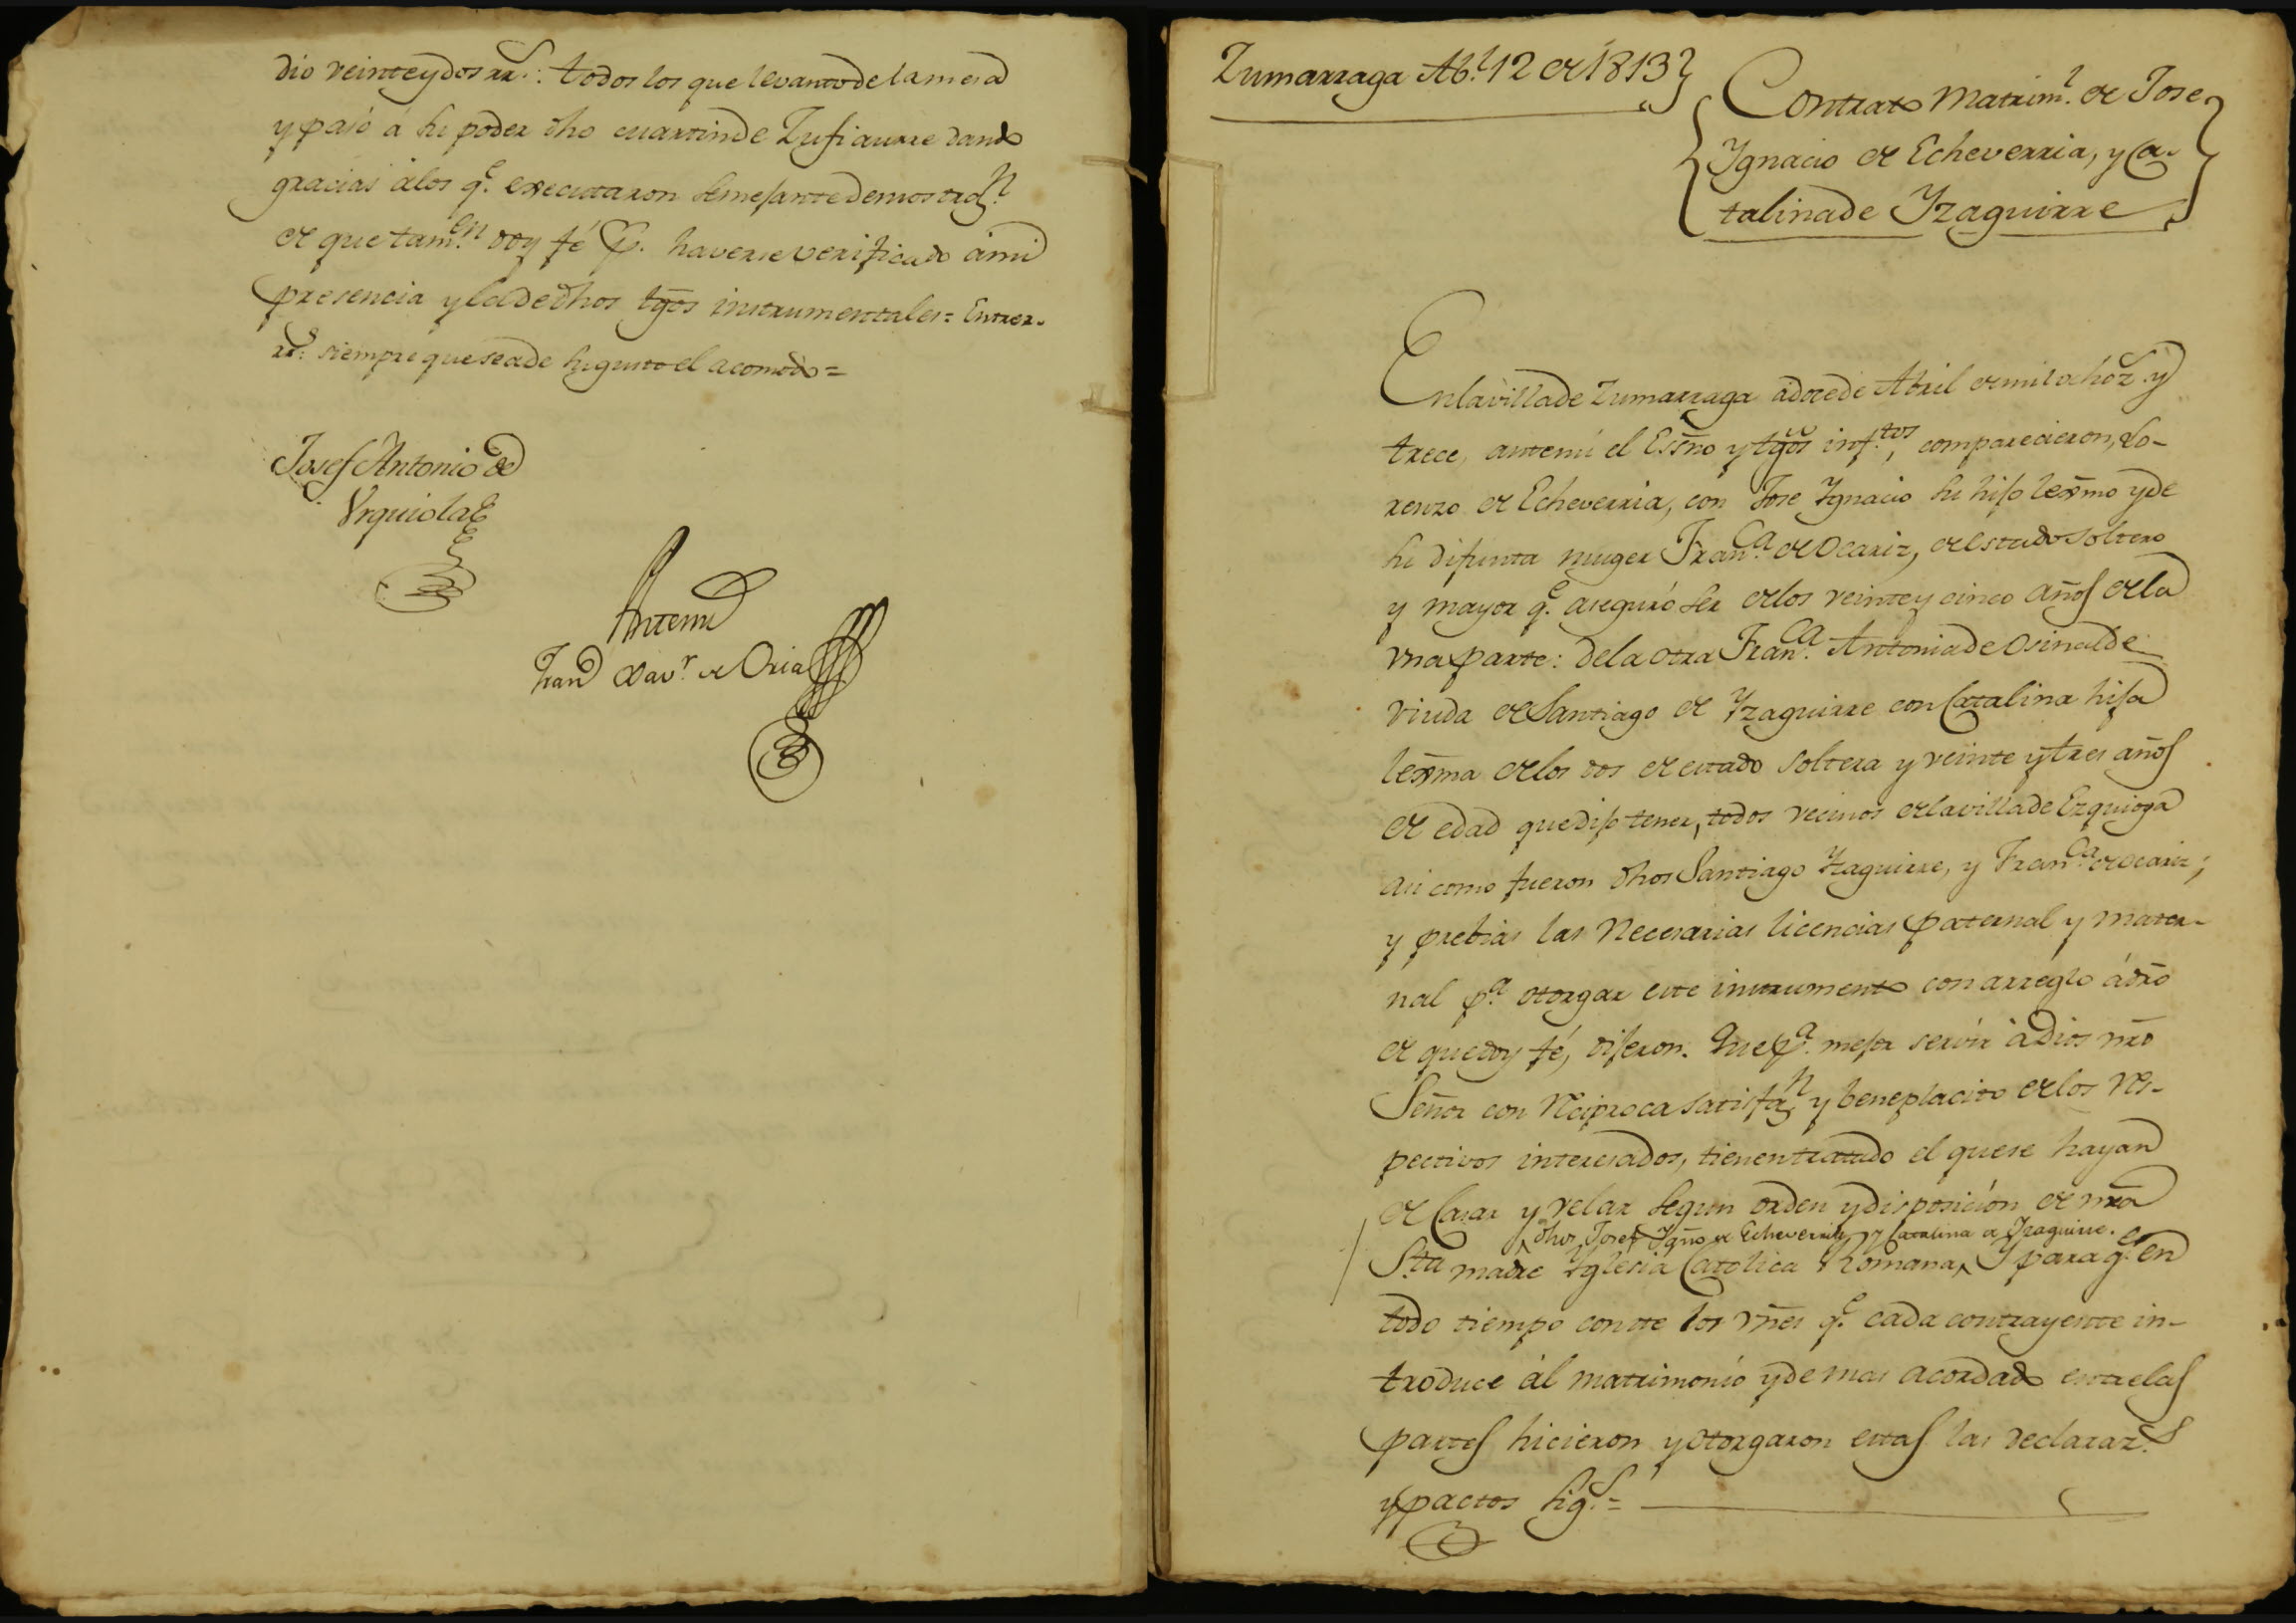 dio veinte y dos rr.s: todos los que levanto de la mesa
y pasó á su poder dho Martin de Zufiaurre dando
gracias á los q.e executaron semejante demostraz.n
de que tam.en doy fé p.r haverse verificado á mi
presencia y la de dhos tgos instrumentales = Entrer.
rs: siempre que sea de su gusto el acomodo =
Josef Antonio de
Urquiola
Antemi
Fran.co Xav.r de Oria
Zumarraga Ab.l 12 de 1813
Contrato Matrim.l de Jose
Ygnacio de Echeverria, y Ca-
talina de Yzaguirre
En la villa de Zumarraga á doce de Abril de mil ochoz.s y
trece, antemi el Essno y tgos inf.tos, comparecieron, Lo-
renzo de Echeverria, con Jose Ygnacio su hijo lexmo y de
su difunta muger Fran.ca de Ocariz, de estado soltero
y mayor q.e aseguró ser de los veinte y cinco años de la
una parte: de la otra Fran.ca Antonia de Osinalde
viuda de Santiago de Yzaguirre con Catalina hija
lexma de los dos de estado soltera y veinte y tres años
de edad que dijo tener, todos vecinos de la villa de Ezquioga
asi como fueron dhos Santiago Yzaguirre, y Fran.ca de Ocariz;
y prebias las necesarias licencias paternal y mater-
nal p.a otorgar este instrumento con arreglo á dro
de que doy fé, dijeron. Que p.a mejor servir á Dios nro
Señor con reciproca satisfaz.n y beneplacito de los res-
pectivos interesados, tienen tratado el que se hayan
de Casar y velar segun orden y disposición de nra
dhos Josef Ygno de Echeverria y Catalina de Yzaguirre.
S.ta madre Yglesia Catolica Romana, Y para q.e en
todo tiempo conste los vnes q.e cada contrayente in-
troduce ál matrimonio y demas acordado entre las
partes hicieron y otorgaron estas las declaraz.s
y pactos sig.s =